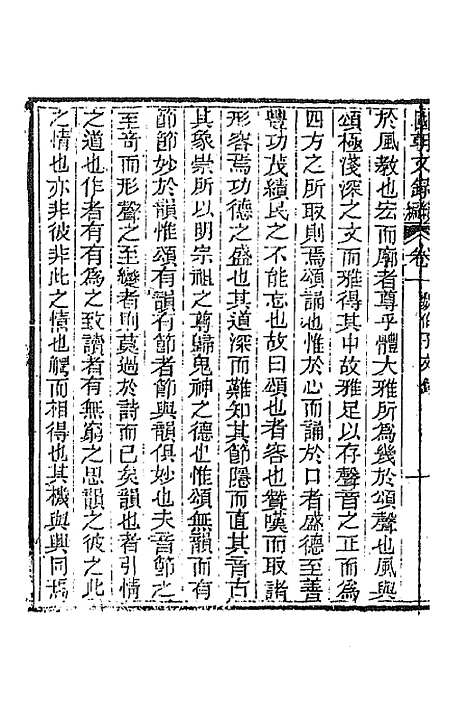 國朝文錄續編 卷一 十
於風教也宏而廓者尊乎體大雅所為幾於頌聲也風與
頌極淺深之文而雅得其中故雅足以存聲音之正而為
四方之所取則焉頌誦也惟於心而誦於口者盛德至善
豐功茂績民之不能忘也故曰頌也者容也贊嘆而取諸
形容焉功德之盛也其道深而難知其節隱而值其音古
其象崇所以明宗祖之尊歸鬼神之德也惟頌無韻而有
節節妙於韻惟頌有韻有節者節與韻俱妙也夫音節之
至奇而形聲之至變者則莫過於詩而已矣韻也者引情
之道也作者有有為之致讀者有無窮之思韻之彼之此
之情也亦非彼非此之情也觸而相得也其機與興同焉